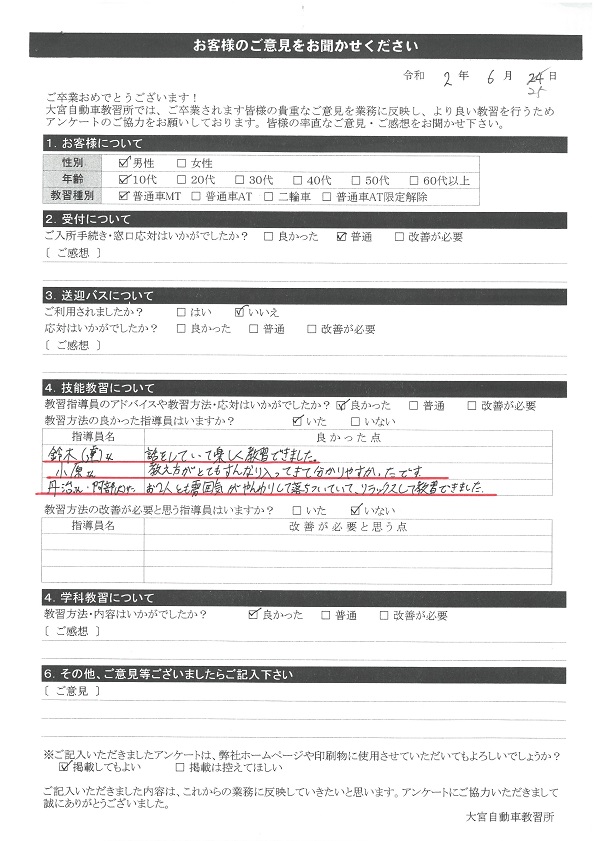 お客様のご意見をお聞かせください
令和 2 年 6 月 24 日
25
ご卒業おめでとうございます！
大宮自動車教習所では、ご卒業されます皆様の貴重なご意見を業務に反映し、より良い教習を行うため
アンケートのご協力をお願いしております。皆様の率直なご意見・ご感想をお聞かせ下さい。
1. お客様について
性別 ☑男性 □女性
年齢 ☑10代 □20代 □30代 □40代 □50代 □60代以上
教習種別 ☑普通車MT □普通車AT □二輪車 □普通車AT限定解除
2. 受付について
ご入所手続き・窓口応対はいかがでしたか？ □良かった ☑普通 □改善が必要
〔 ご感想 〕
3. 送迎バスについて
ご利用されましたか？ □はい ☑いいえ
応対はいかがでしたか？ □良かった □普通 □改善が必要
〔 ご感想 〕
4. 技能教習について
教習指導員のアドバイスや教習方法・応対はいかがでしたか？ ☑良かった □普通 □改善が必要
教習方法の良かった指導員はいますか？ ☑いた □いない
指導員名 良かった点
鈴木(連)さん 話をしていて楽しく教習できました。
小原さん 教え方がとてもすんなり入ってきて分かりやすかったです
丹治さん・阿部さん お2人とも雰囲気がやんわりして落ちついていて、リラックスして教習できました。
教習方法の改善が必要と思う指導員はいますか？ □いた ☑いない
指導員名 改善が必要と思う点
4. 学科教習について
教習方法・内容はいかがでしたか？ ☑良かった □普通 □改善が必要
〔 ご感想 〕
6. その他、ご意見等ございましたらご記入下さい
〔 ご意見 〕
※ご記入いただきましたアンケートは、弊社ホームページや印刷物に使用させていただいてもよろしいでしょうか？
☑掲載してもよい □掲載は控えてほしい
ご記入いただきました内容は、これからの業務に反映していきたいと思います。アンケートにご協力いただきまして
誠にありがとうございました。
大宮自動車教習所